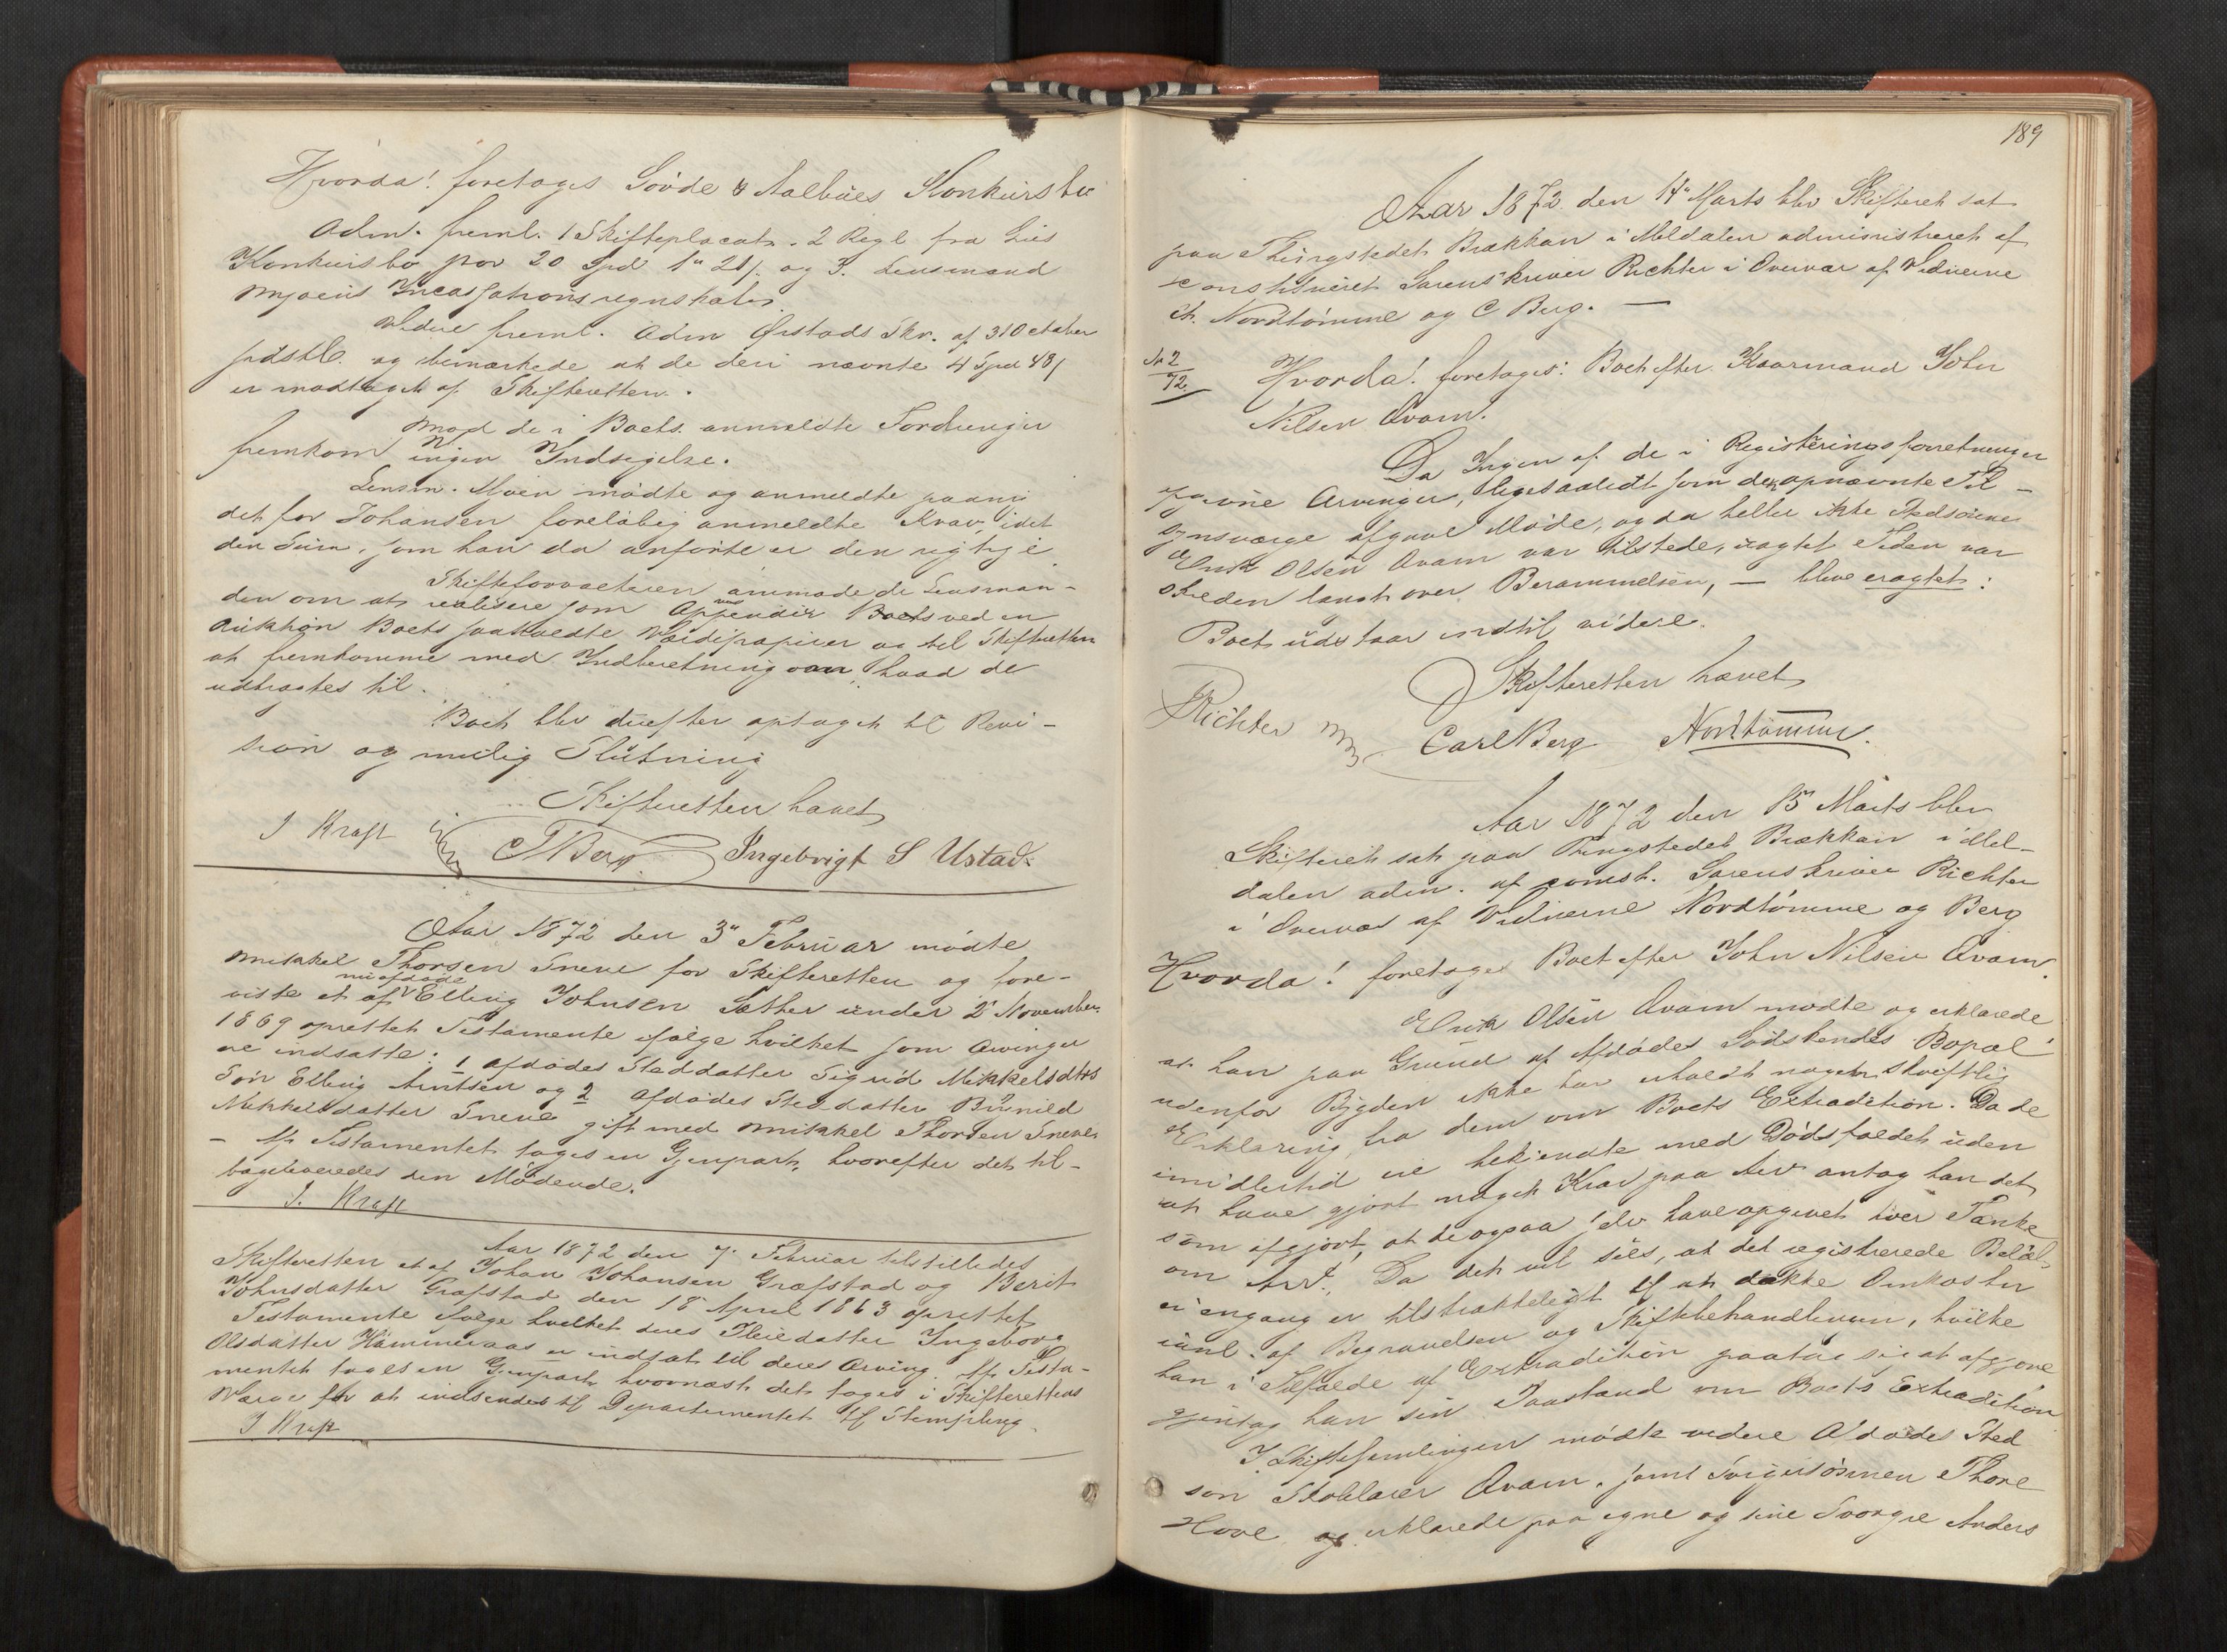 Hvorda! foretoges Søvde & Aalbues Konkursbo
Adm. freml. 1 Skifteplacat. 2 Regl fra Lies
Konkursbo for 20 Spd 1 " 21 /. og 3. Lensmand
Moens Incassationsregnskab.
Videre freml. Adm Ørstads Skr. af 31 October
sidstl. og bemærkede at de deri nævnte 4 Spd 48 /
er modtaget af Skifteretten.
Mod de i Boets anmeldte Fordringer
fremkom ingen Indsigelse.
Lensm. Moen mødte og anmeldte
det for Johansen foreløbig anmeldte Krav, idet
den Sum, som han da anførte er den rigtige
Skifteforvalteren anmodede Lensman-
den om at realisere som Boets ved en
Auktion Boets Værdipapirer og til Skifteretten
at fremkomme med Indberetning om, hvad de
udbragtes til.
Boet blev derefter optaget til Revi-
sion og mulig Slutning
Skifteretten hævet
J Kraft C T Berg Ingebrigt S Ustad
Aar 1872 den 3" Februar mødte
Mikkel Thorsen Sneve for Skifteretten og fore-
nu afdøde
viste et af Elling Johnsen Sæther under 2 November
1869 oprettet Testamente ifølge hvilket som Arvinger
ere indsatte: 1 afdødes Steddatter Sigrid Mikkelsdtrs
Søn Elling Arntsen og 2 Afdødes Steddatter Brynild
Mikkelsdatter Sneve gift med Mikkel Thorsen Sneve
– Af Testamentet toges en Gjenpart, hvorefter det til-
bageleveredes den Mødende.
J. Kraft
Aar 1872 den 7. Februar tilstilledes
Skifteretten et af Johan Johansen Grefstad og Berit
Johnsdatter Grefstad den 18 April 1863 oprettet
Testamente ifølge hvilket deres Pleiedatter Ingeborg
Olsdatter Hammeraas er indsat til deres Arving. Af Testa-
mentet toges en Gjenpart hvornæst det toges i Skifterettens
Værge for at indsendes til Departementet til Stempling.
J Kraft
189
Aar 1872 den 14" Marts blev Skifteret sat
paa Thingstedet Brækkan i Meldalen administreret af
constitueret Sorenskriver Richter i Overvær af Vidnerne
Nordtømme og C Berg. —
No 2
72
Hvorda! foretoges: Boet efter Kaarmand John
Nilsen Qvam.
Da Ingen af de i Registeringsforretningen
opgivne Arvinger, ligesaalidt som den opnævnte Til-
synsværge afgave Møde, og da heller ikke Stedsønnen
Erik Olsen Qvam var tilstede, uagtet Tiden var
skreden langt over Berammelsen, — blev eragtet:
Boet udstaar indtil videre.
Skifteretten hævet
Richter Carl Berg Nordtømme.
Aar 1872 den 15" Marts blev
Skifteret sat paa Thingstedet Brækkan i Mel-
dalen adm. af const. Sorenskriver Richter
i Overvær af Vidnerne Nordtømme og Berg
Hvorda! foretoges Boet efter John Nilsen Qvam.
Erik Olsen Qvam mødte og erklærede
at han paa Grund af Afdødes Sødskendes Bopæl
udenfor Bygden ikke har erholdt nogen skriftlig
Erklæring fra dem om Boets Extradition. Da de
imidlertid ere bekjendte med Dødsfaldet uden
at have gjort noget Krav paa Arv antog han det
som afgjort, at de ogsaa selv have opgivet hver Tanke
om Arv. Da det vil sees, at det registrerede Beløb
ei engang er tilstrækkeligt til at dække Omkoster
af Begravelsen og Skiftebehandlingen, hvilke
han i Tilfælde af Extradition paatog sig at afgjøre
gjentog han sin Paastand om Boets Extradition
I Skiftesamlingen mødte videre Afdødes Sted
søn Qvam, samt Svigersønnen Thore
Hove, og erklærede paa egne og sine Svogre Anders